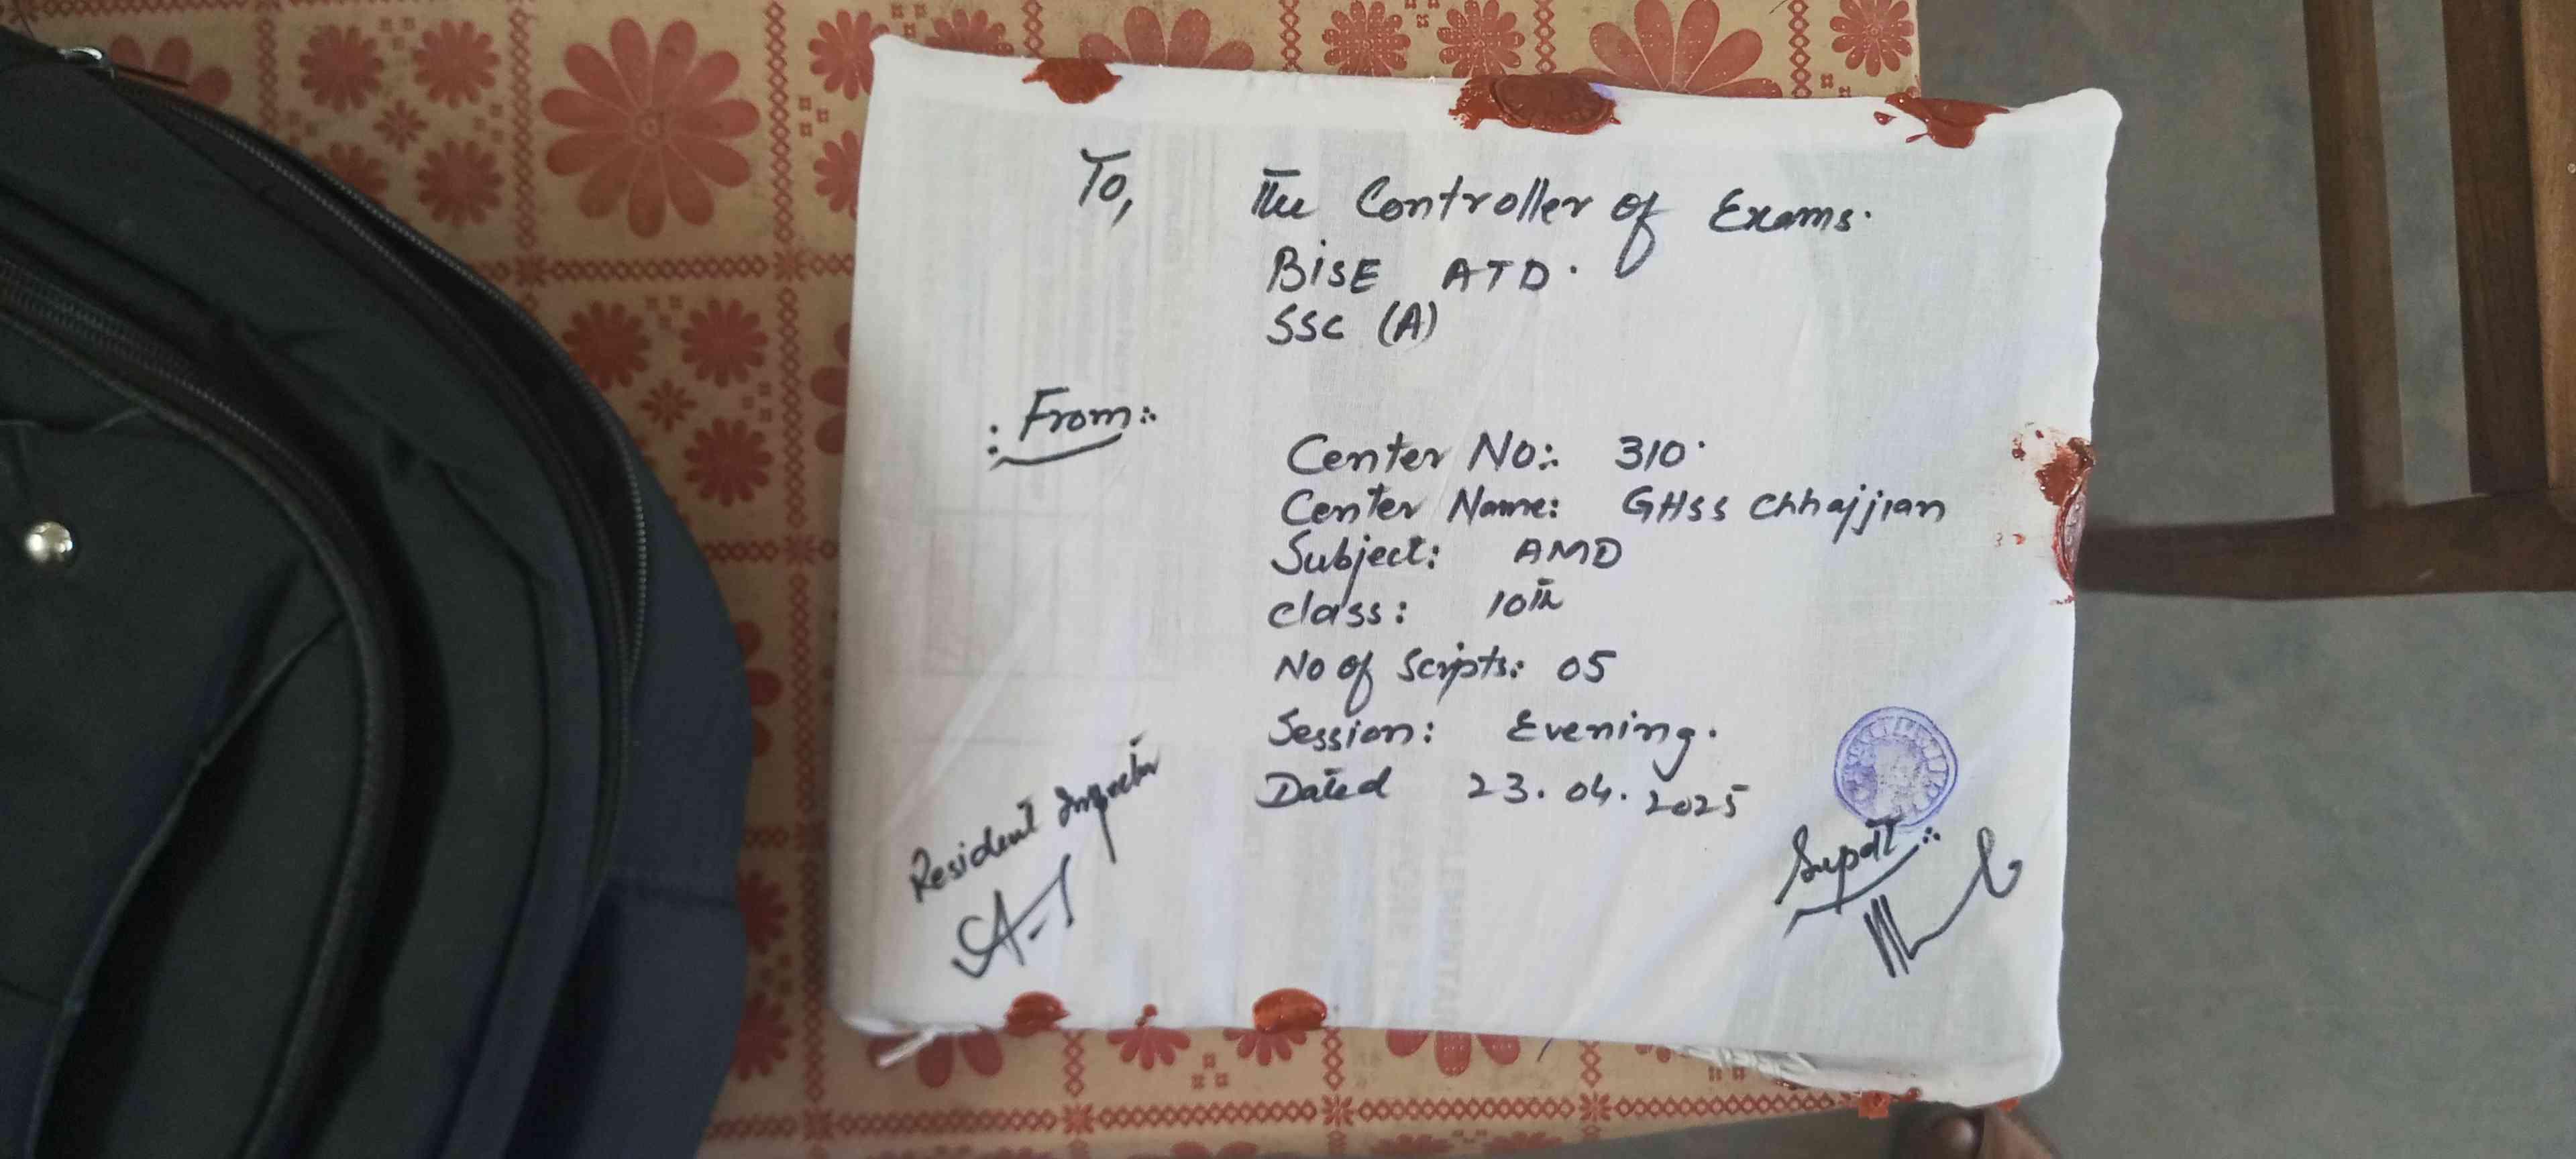 To, The Controller of Exams.
BiSE ATD.
SSC (A)
: From :.
Center No:. 310.
Center Name: GHSS Chhajjian
Subject: AMD
class: 10th
No of Scripts: 05
Session: Evening.
Dated 23.04.2025
Resident Inspector
Supdt :.